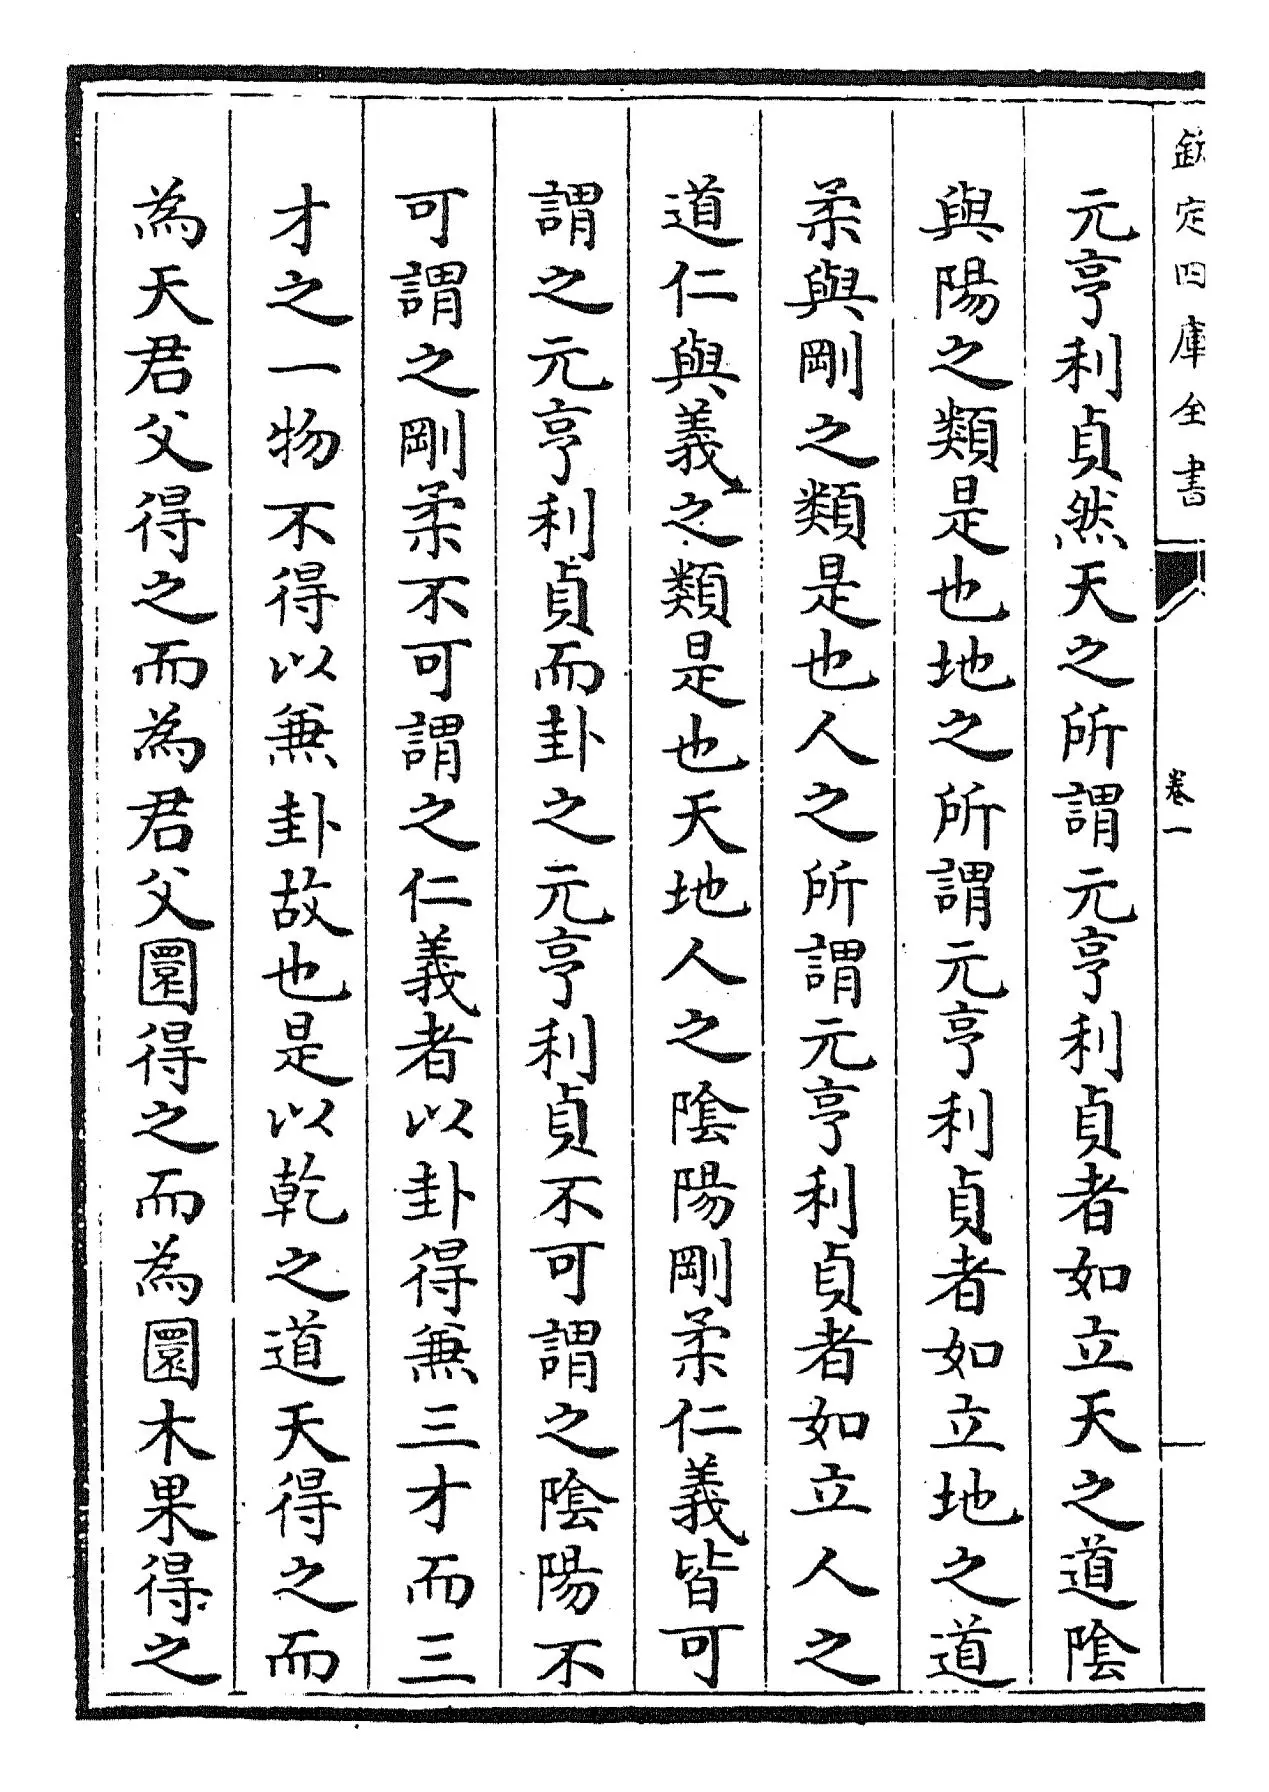 欽定四庫全書
卷一
元亨利貞然天之所謂元亨利貞者如立天之道陰
與陽之類是也地之所謂元亨利貞者如立地之道
柔與剛之類是也人之所謂元亨利貞者如立人之
道仁與義之類是也天地人之陰陽剛柔仁義皆可
謂之元亨利貞而卦之元亨利貞不可謂之陰陽不
可謂之剛柔不可謂之仁義者以卦得兼三才而三
才之一物不得以兼卦故也是以乾之道天得之而
為天君父得之而為君父圜得之而為圜木果得之